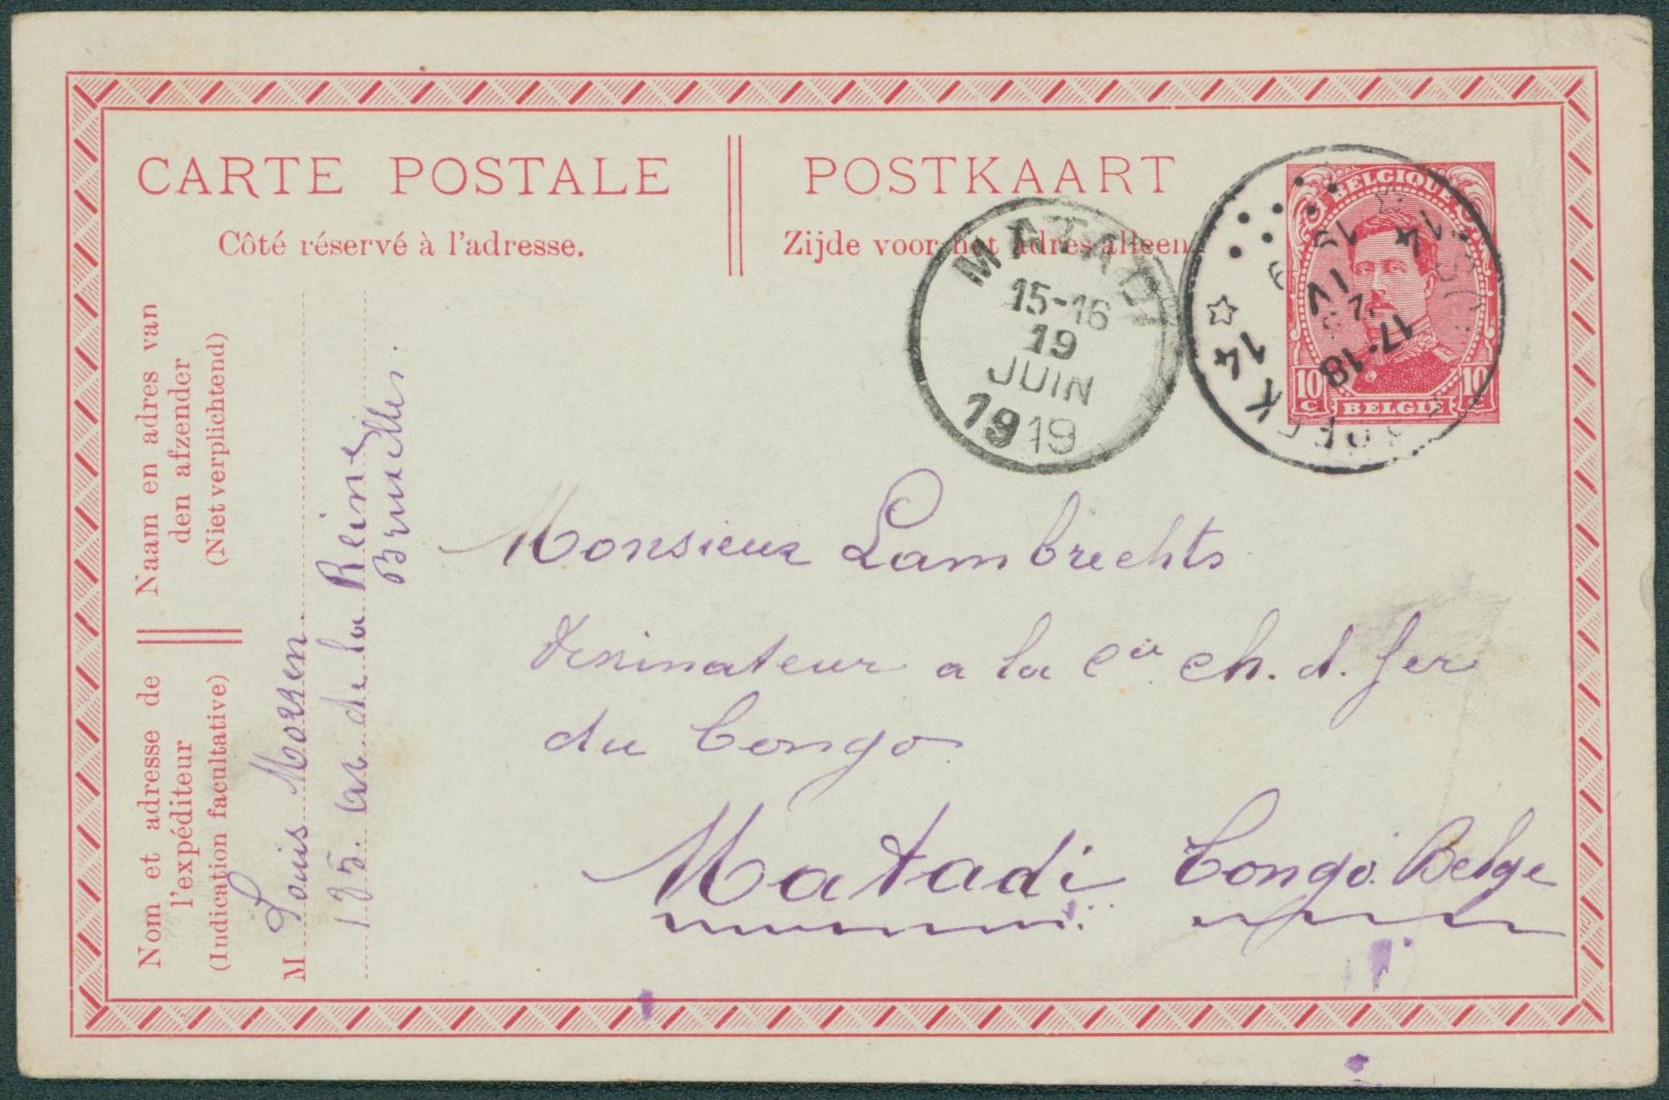 CARTE POSTALE
Côté réservé à l'adresse.
POSTKAART
Zijde voor het adres alleen
MATADI
15-16
19
JUIN
1919
BELGIQUE
10 C
10 C
BELGIE
17-18
IV
19
K 14
Naam en adres van
den afzender
(Niet verplichtend)
Nom et adresse de
l'expéditeur
(Indication facultative)
M Louis
de la Reine
Bruxelles.
Monsieur Lambrechts
a la Cie ch. d. fer
du Congo
Matadi Congo Belge